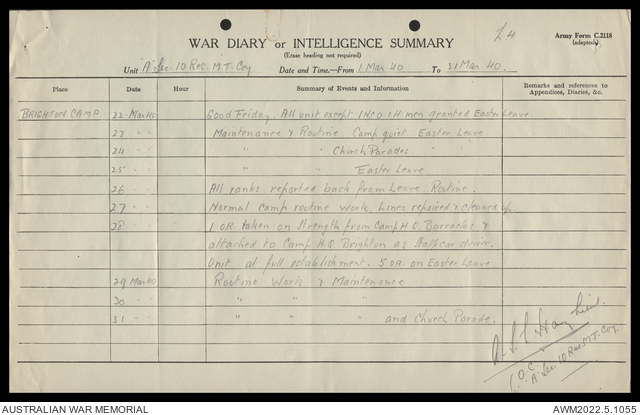 £4
Army Form C.2118
(adapted)
WAR DIARY or INTELLIGENCE SUMMARY
(Erase heading not required)
Unit A Sec. 10 Res. M.T. Coy Date and Time.—From 1 Mar. 40 To 31 Mar. 40.
Place Date Hour Summary of Events and Information Remarks and references to
Appendices, Diaries, &c.
BRIGHTON CAMP 22 Mar 40 Good Friday. All unit except 1 NCO & 4 men granted Easter Leave.
23 " " Maintenance & Routine. Camp quiet. Easter Leave.
24 " " " " Church Parades "
25 " " " " Easter Leave
26 " " All ranks reported back from Leave. Routine.
27 " " Normal camp routine work. Lines repaired & cleaned up.
28 " " 1 OR taken on Strength from Camp H.Q. Barracks &
attached to Camp H.Q Brighton as Staff car driver.
Unit at full establishment. 5 OR on Easter Leave
29 Mar 40 Routine Work & Maintenance
30 " " " " "
31 " " " " and Church Parade.
Lieut.
O.C.
A Sec. 10 Res. M.T. Coy.
AUSTRALIAN WAR MEMORIAL AWM2022.5.1055